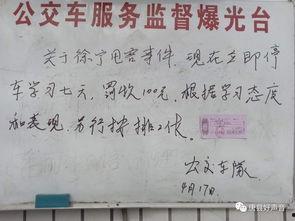 公交车服务监督爆光台
关于徐宁甩客事件，现在立即停
车学习七天，罚款100元，根据学习态度
和表现，另行安排工作。
公交车队
9月17日
唐县好声音